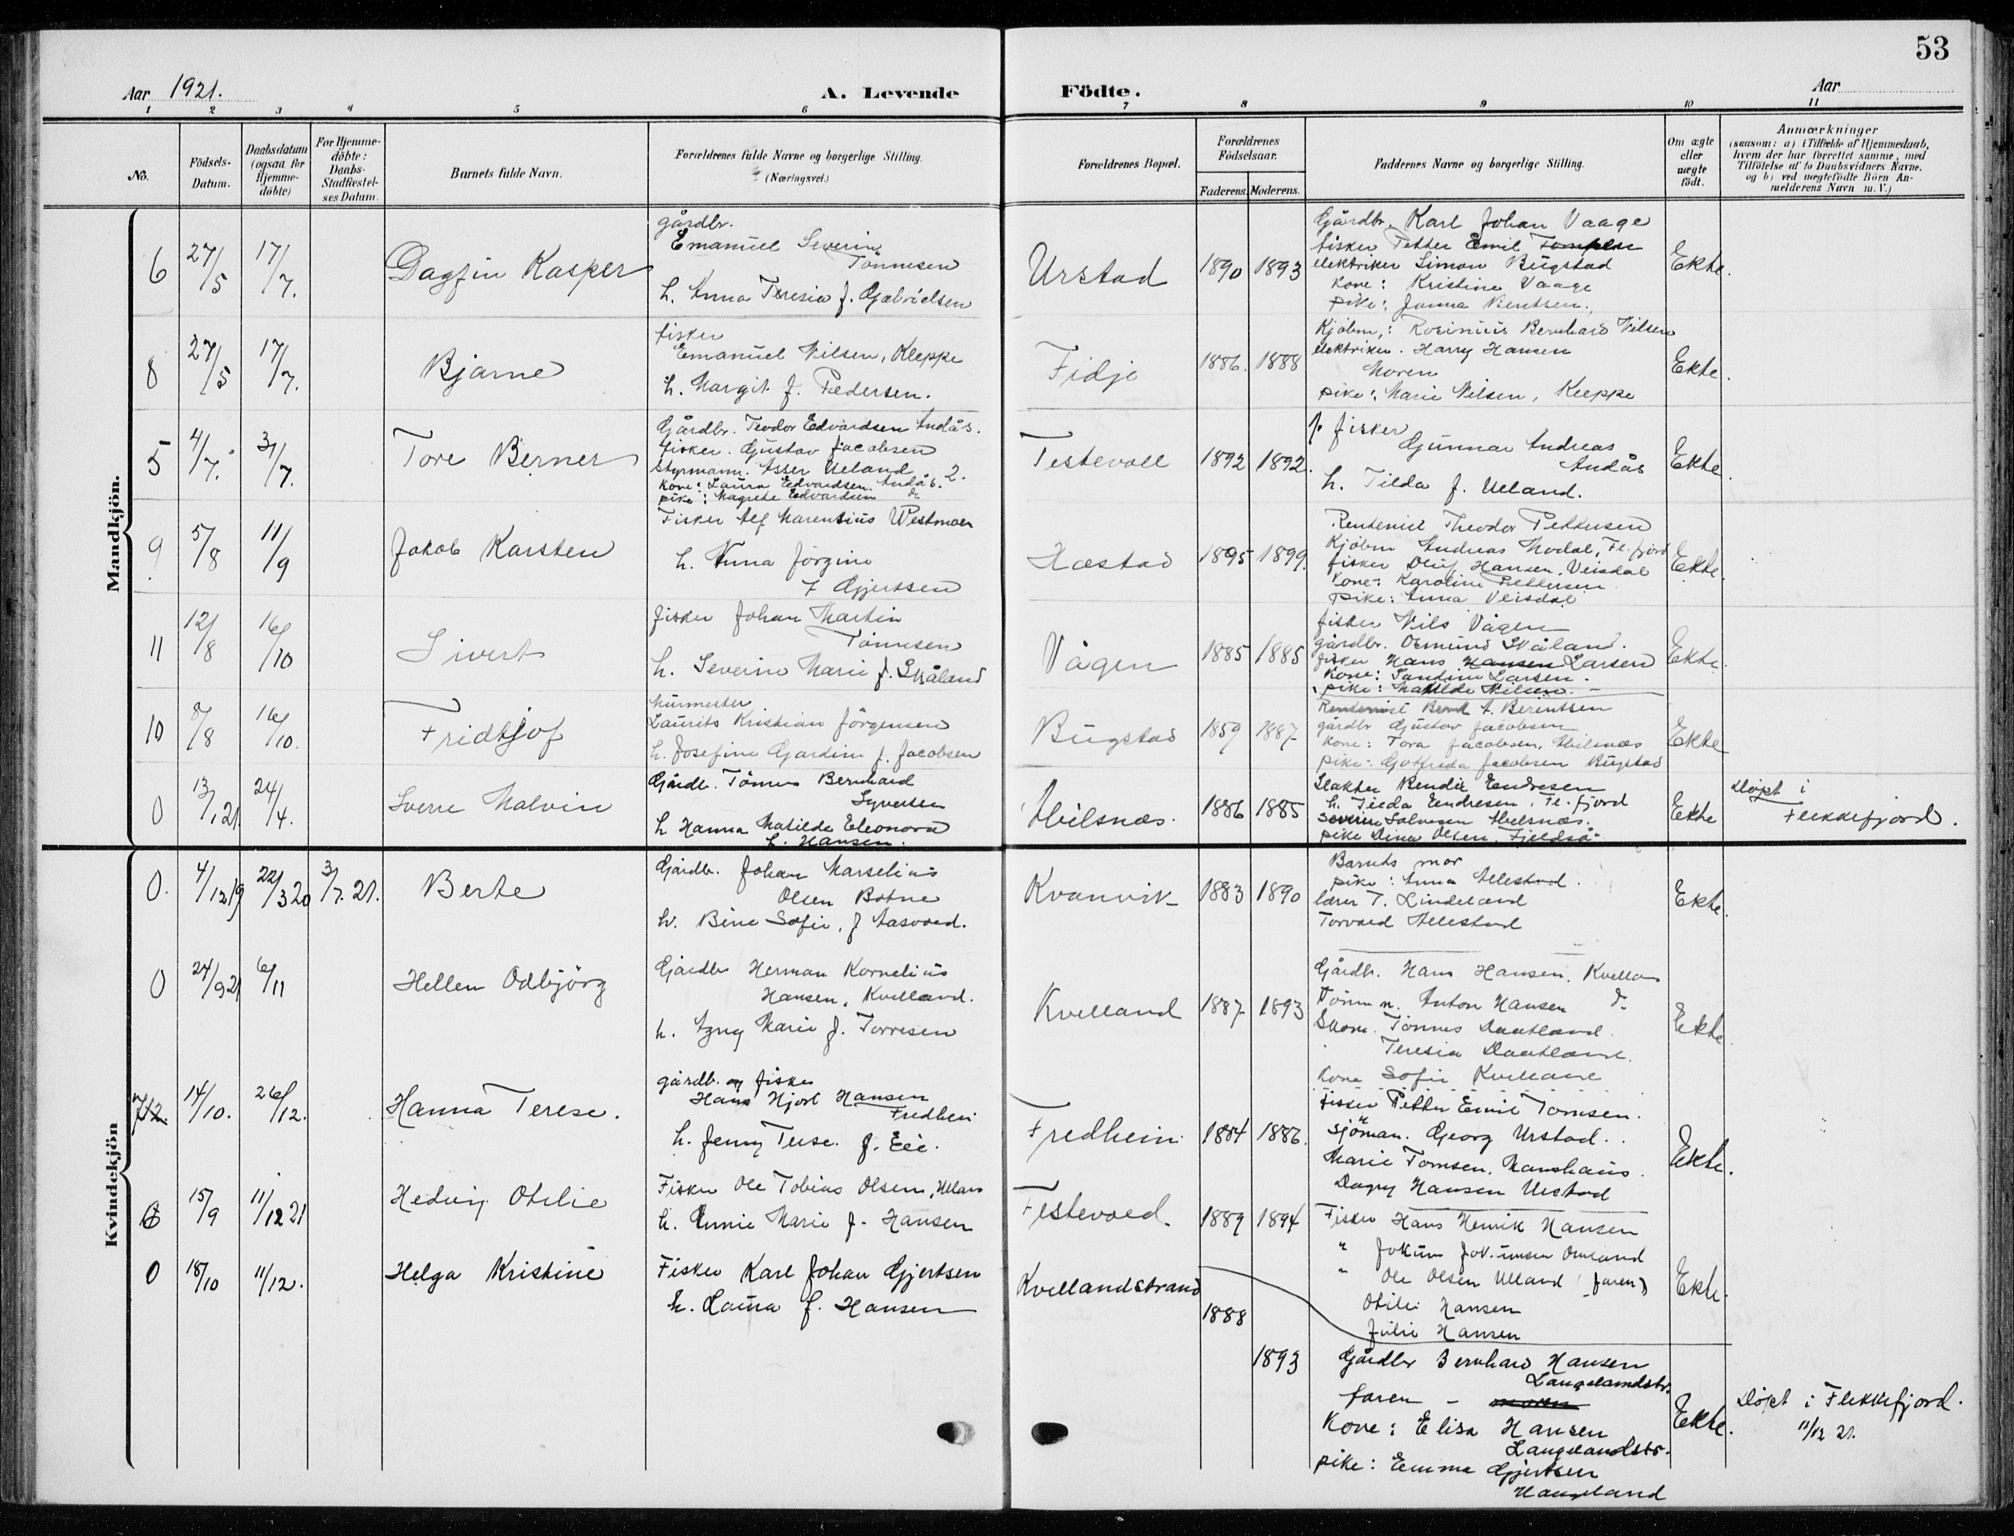 53
Aar 1921.
A. Levende Födte.
Aar
1 2 3 4 5 6 7 8 9 10 11
No.
Födsels-Datum.
Daabsdatum (ogsaa for Hjemme-döbte)
For Hjemme-döbte: Daabs-Stadfæstel-ses Datum.
Barnets fulde Navn.
Forældrenes fulde Navne og borgerlige Stilling. (Næringsvei.)
Forældrenes Bopæl.
Forældrenes Födselsaar.
Faderens. Moderens.
Faddernes Navne og borgerlige Stilling.
Om ægte eller uægte födt.
Anmærkninger
(saasom: a) i Tilfælde af Hjemmedaab, hvem der har forrettet samme, med Tilföielse af to Daabsvidners Navne. og b) ved uægtefödte Börn An-melderens Navn m. V.)
Mandkjön.
6 27/5 17/7. Dagfin Kasper
gårdbr.
Emanuel Severin
Tönnesen
h. Anna Teresia f. Gabrielsen
Urstad 1890 1893
Gårdbr. Karl Johan Vaage
fisker Petter Emil Tompsen
elektriker Simon Bugstad
kone: Kristine Vaage
pike: Janna Bentsen.
Ekte.
8 27/5 17/7. Bjarne
fisker
Emanuel Nilsen, Kleppe
h. Margit f. Pedersen.
Fidje 1886. 1888
Kjöbm.: Rosinius Bernhard Nilsen
elektriker. Harry Hansen
Moren
pike: Marie Nilsen, Kleppe
Ekte.
5 4/7. 3/7. Tore Berner
Gårdbr. Teodor Edvardsen Andås.
fisker. Gustav Jacobsen
Styrmann. Asser Ueland 2.
kone: Laura Edvardsen. Andås.
pike: Magrete Edvardsen do
Festevoll 1892 1892.
f. fisker
Gunnar Andreas
Andås
h. Tilda f. Ueland.
Ekte
9 5/8 11/9 Jakob Karsten
Fisker Alf Marensius Westmoen
h. Anna Jörgine
f Gjertsen
Hæstad 1895 1899.
Rentenist Theodor Pettersen
Kjöbm Andreas Modal, Fl. fjord
fisker Oluf Hansen, Veisdal
Kone: Karoline Pettersen
pike: Anna Veisdal
Ekte.
11 12/8 16/10 Sivert
fisker Johan Martin
Tönnesen
h. Severine Marie f. Skåland
Vågen 1885 1885
fisker Nils Vågen
gårdbr. Osmund Skåland.
fisker Hans Hansen Larsen
Kone: Tandine Larsen.
pike: Matilde Nilsen. -
Ekte.
10 8/8 16/10. Fridtjof
Murmester
Laurits Kristian Jörgensen
h. Josefine Gardine f. Jacobsen
Bugstad 1859 1887
Rentenist Bernt A. Berentsen
gårdbr Gustav Jacobsen
Kone: Tora Jacobsen, Abilsnæs
pike: Gotfrida Jacobsen Bugstad
Ekte
0 13/1 21 24/4. Sverre Malvin
Gårdb. Tönnes Bernhard
Syvertsen
h Hanna Matilde Eleonora
f. Hansen.
Abilsnæs. 1886 1885
Slakter Bendix Endresen
h. Tilda Endresen. Fl. fjord
Severine Salvesen Abelsnæs.
pike Dina Olsen. Fjeldså
Ekte
Döpt i
Flekkefjord.
Kvindekjön
0. 4/12 19 22/3 20 3/7. 21. Berte
Gårdbr. Johan Marselius
Olsen Botne
h. Bine Sofie, f Aasvoed.
Kvanvik 1883 1890
Barnets mor
pike: Anna Allestad.
lærer T. Lindeland
Torvald Allestad
Ekte.
0 24/9 21 6/11 Hellen Odbjörg
Gårdbr Herman Kornelius
Hansen, Kvelland.
h. Agny Marie f. Torresen
Kvelland 1887 1893
Gårdb. Hans Hansen. Kvelland
Tömm. Anton Hansen do
Skom. Tönnes Daatland.
Teresia Daatland.
Kone Sofie Kvelland
Ekte
7 12 14/10. 26/12. Hanna Terese.
gårdb. og fisker
Hans Hjort Hansen
Fredheim
h. Jenny Terese. f. Eie.
Fredheim 1884 1886.
fisker Petter Emil Tomsen.
sjöman. Georg Urstad.
Marie Tomsen. Navshaus.
Dagny Hansen Urstad
Ekte.
6 15/9 11/12 21 Hedvig Otilie
Fisker Ole Tobias Olsen, Ulland
h. Annie Marie f. Hansen
Festevoed. 1889 1894
Fisker Hans Henrik Hansen
" Jokum Joakimsen Omland
" Ole Olsen Ulland (faren)
Otilie Hansen
Julie Hansen
Ekte.
0 18/10 11/12. Helga Kristine
Fisker Karl Johan Gjertsen
h. Laura f. Hansen
Kvellandstrand
1888
1893
Gårdbr Bernhard Hansen
Langelandstr.
faren - moren
Kone: Elisa Hansen
Langelandstr.
pike: Emma Gjertsen
Haugeland
Ekte.
Döpt i Flekkefjord.
11/12 21.